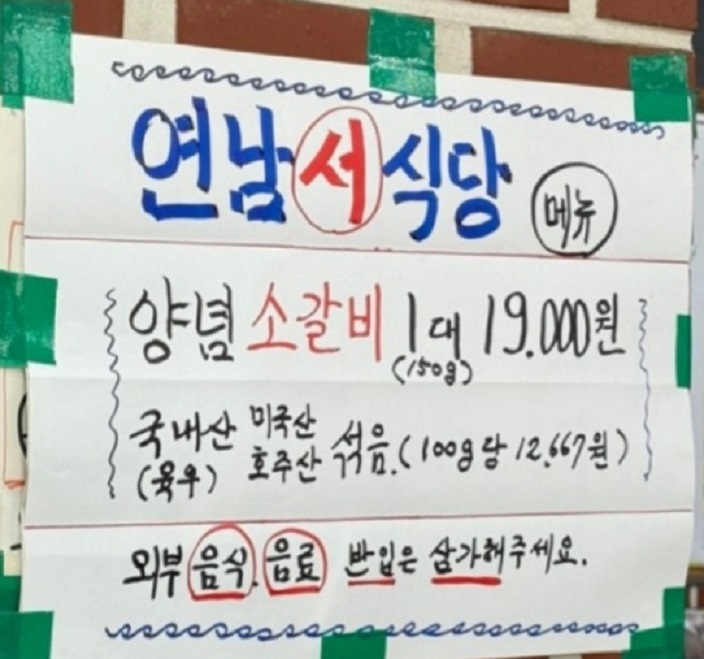 연남서식당 메뉴
양념 소갈비 1대 19.000원
(150g)
국내산 미국산 섞음.(100g당 12.667원)
(육우) 호주산
외부 음식. 음료 반입은 삼가해주세요.